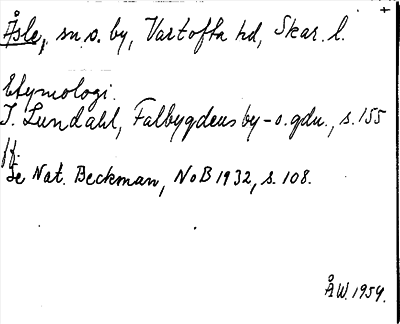 +
Åsle, sn o. by, Vartofta hd, Skar. l.
Etymologi.
I. Lundahl, Falbygdens by- o. gdn., s. 155
ff.
Se Nat. Beckman, NoB 1932, s. 108.
ÅW. 1959.